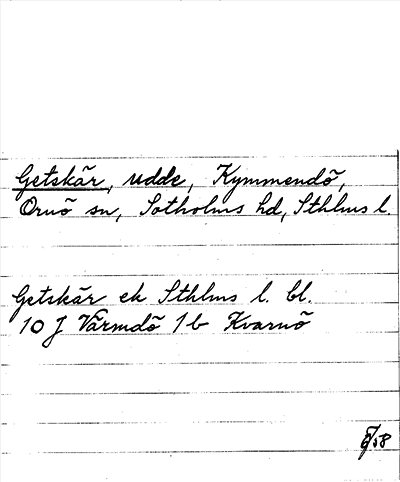 Getskär, udde, Kymmendö,
Ornö sn, Sotholms hd, Sthlms l.
Getskär ek Sthlms l. bl.
10 J Värmdö 1b Kvarnö